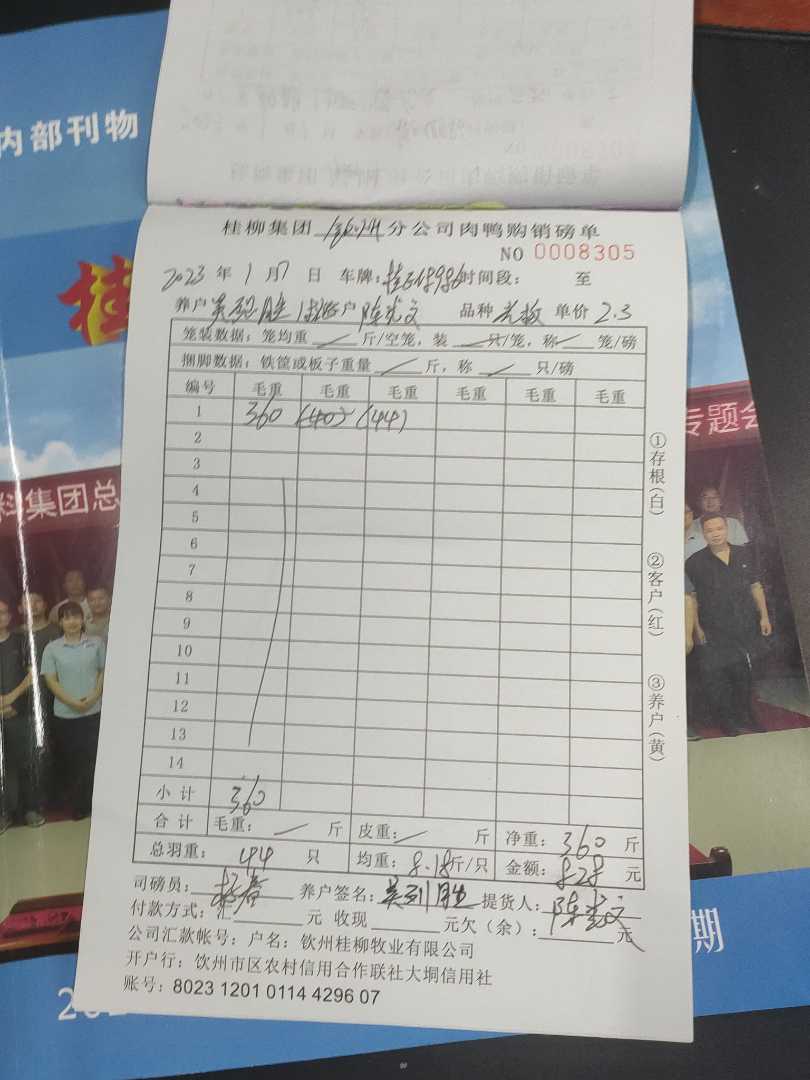 内部刊物
桂
料集团总
专题会
期
桂柳集团 钦州 分公司肉鸭购销磅单
NO 0008305
2023 年 1 月 7 日 车牌: 时间段: 至
养户 客户 陈光文 品种 单价 2.3
笼装数据: 笼均重 / 斤/空笼, 装 / 只/笼, 称 / 笼/磅
捆脚数据: 铁筐或板子重量 / 斤, 称 / 只/磅
编号 毛重 毛重 毛重 毛重 毛重 毛重
1 360 (40) (44)
2
3
4
5
6
7
8
9
10
11
12
13
14
小计 360
合计 毛重: / 斤 皮重: / 斤 净重: 360 斤
总羽重: 44 只 均重: 8.18 斤/只 金额: 828 元
司磅员: 养户签名: 提货人: 陈光文
付款方式: 汇 元 收现 元欠(余): 元
公司汇款帐号: 户名: 钦州桂柳牧业有限公司
开户行: 钦州市区农村信用合作联社大垌信用社
账号: 8023 1201 0114 4296 07
①存根(白)
②客户(红)
③养户(黄)